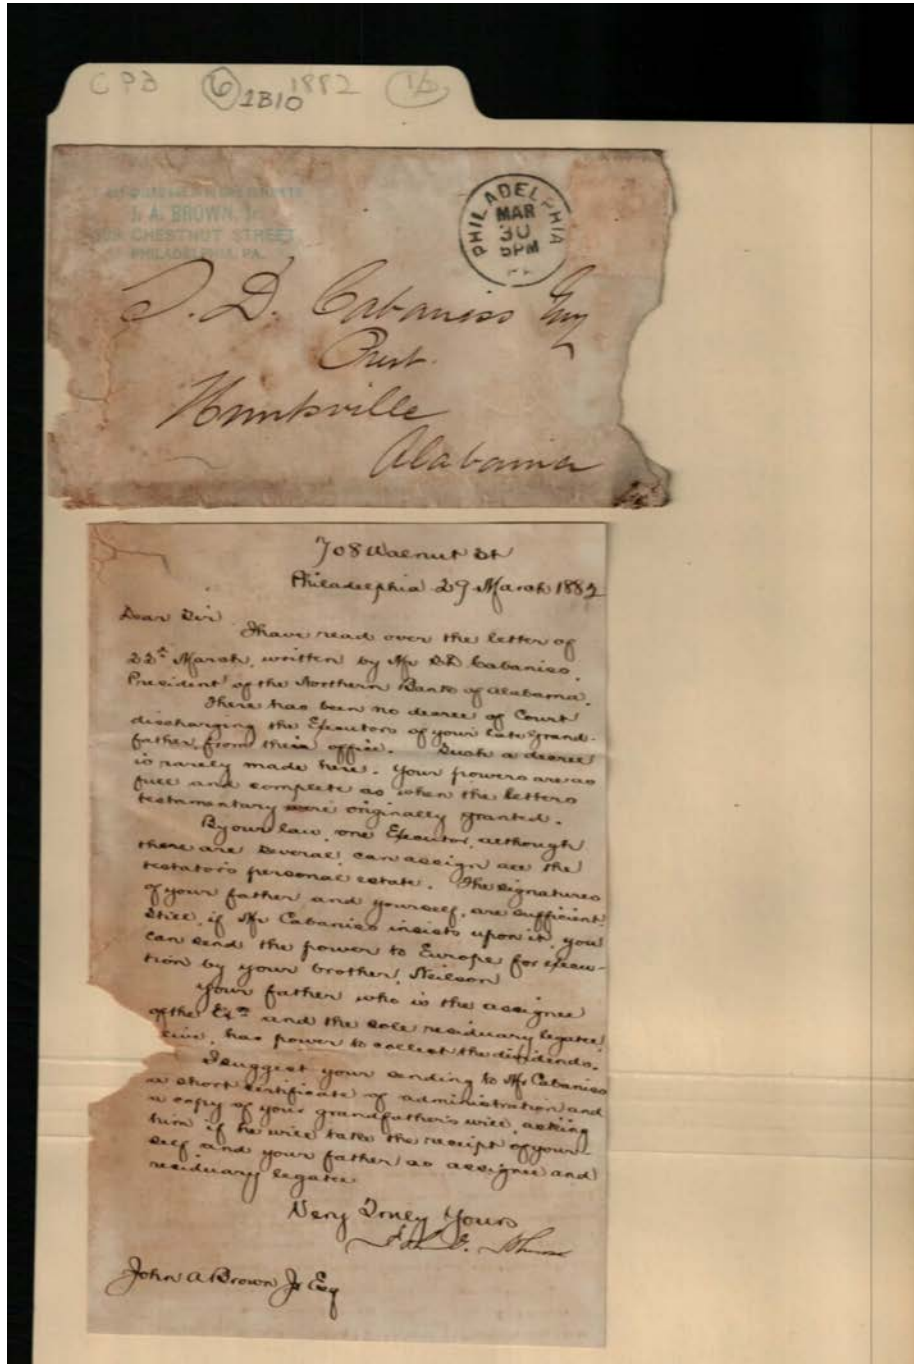 CPB 6 1B10 1882 1/2
J. A. BROWN, Jr.
CHESTNUT STREET,
PHILADELPHIA, PA.
PHILADELPHIA
MAR
30
5PM
PA
S. D. Cabaniss Esq
Prest.
Huntsville
Alabama
708 Walnut St
Philadelphia 29 March 1882
Dear Sir
I have read over the letter of
22d March, written by Mr SD Cabaniss,
President of the Northern Bank of Alabama.
There has been no decree of Court
discharging the Executors of your late grand-
father, from their office. Such a decree
is rarely made here. Your powers are as
full and complete as when the letters
testamentary were originally granted.
By our law, one Executor, although
there are several, can assign all the
testator's personal estate. The signatures
of your father and yourself, are sufficient.
Still, if Mr Cabaniss insists upon it, you
can send the power to Europe for execu-
tion by your brother, Neilson
Your father who is the assignee
of the Exrs and the sole residuary legatee,
, has power to collect the dividends.
I suggest your sending to Mr Cabaniss
a short certificate of administration and
a copy of your grandfather's will, asking
him if he will take the receipt of your-
self and your father as assignee and
residuary legatee
Very Truly Yours
John A Brown Jr Esq